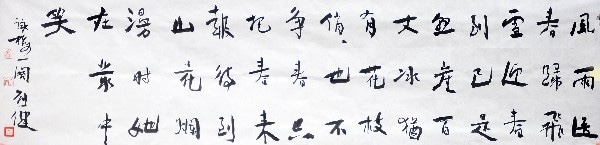 風雨送
春歸飛
雪迎春
到已是
悬崖百
丈冰猶
有花枝
俏、也不
争春只
把春来
報待到
山花爛
漫时她
在叢中
笑
詠梅一阕